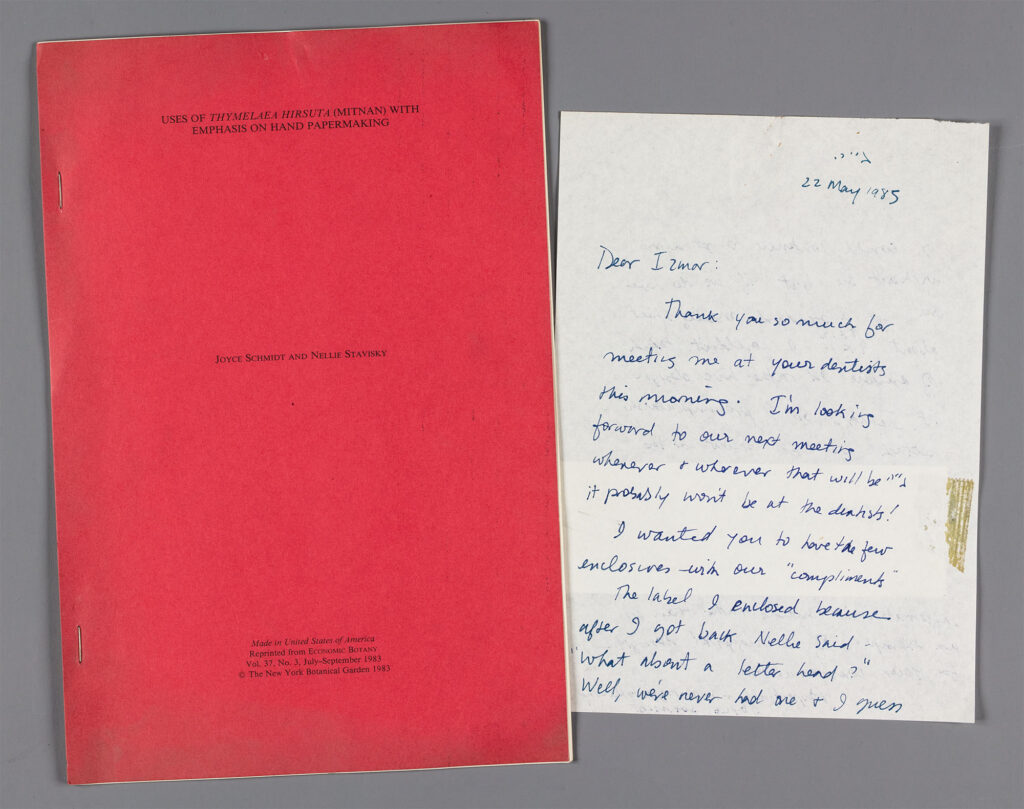 USES OF THYMELAEA HIRSUTA (MITNAN) WITH
EMPHASIS ON HAND PAPERMAKING
JOYCE SCHMIDT AND NELLIE STAVISKY
Made in United States of America
Reprinted from ECONOMIC BOTANY
Vol. 37, No. 3, July–September 1983
© The New York Botanical Garden 1983
22 May 1985
Dear Izmar:
Thank you so much for
meeting me at your dentists
this morning. I'm looking
forward to our next meeting
whenever + wherever that will be
it probably won't be at the dentists!
I wanted you to have the few
enclosures with our "compliments"
The label I enclosed because
after I got back Nellie said -
"what about a letter head?"
Well, we've never had one + I guess